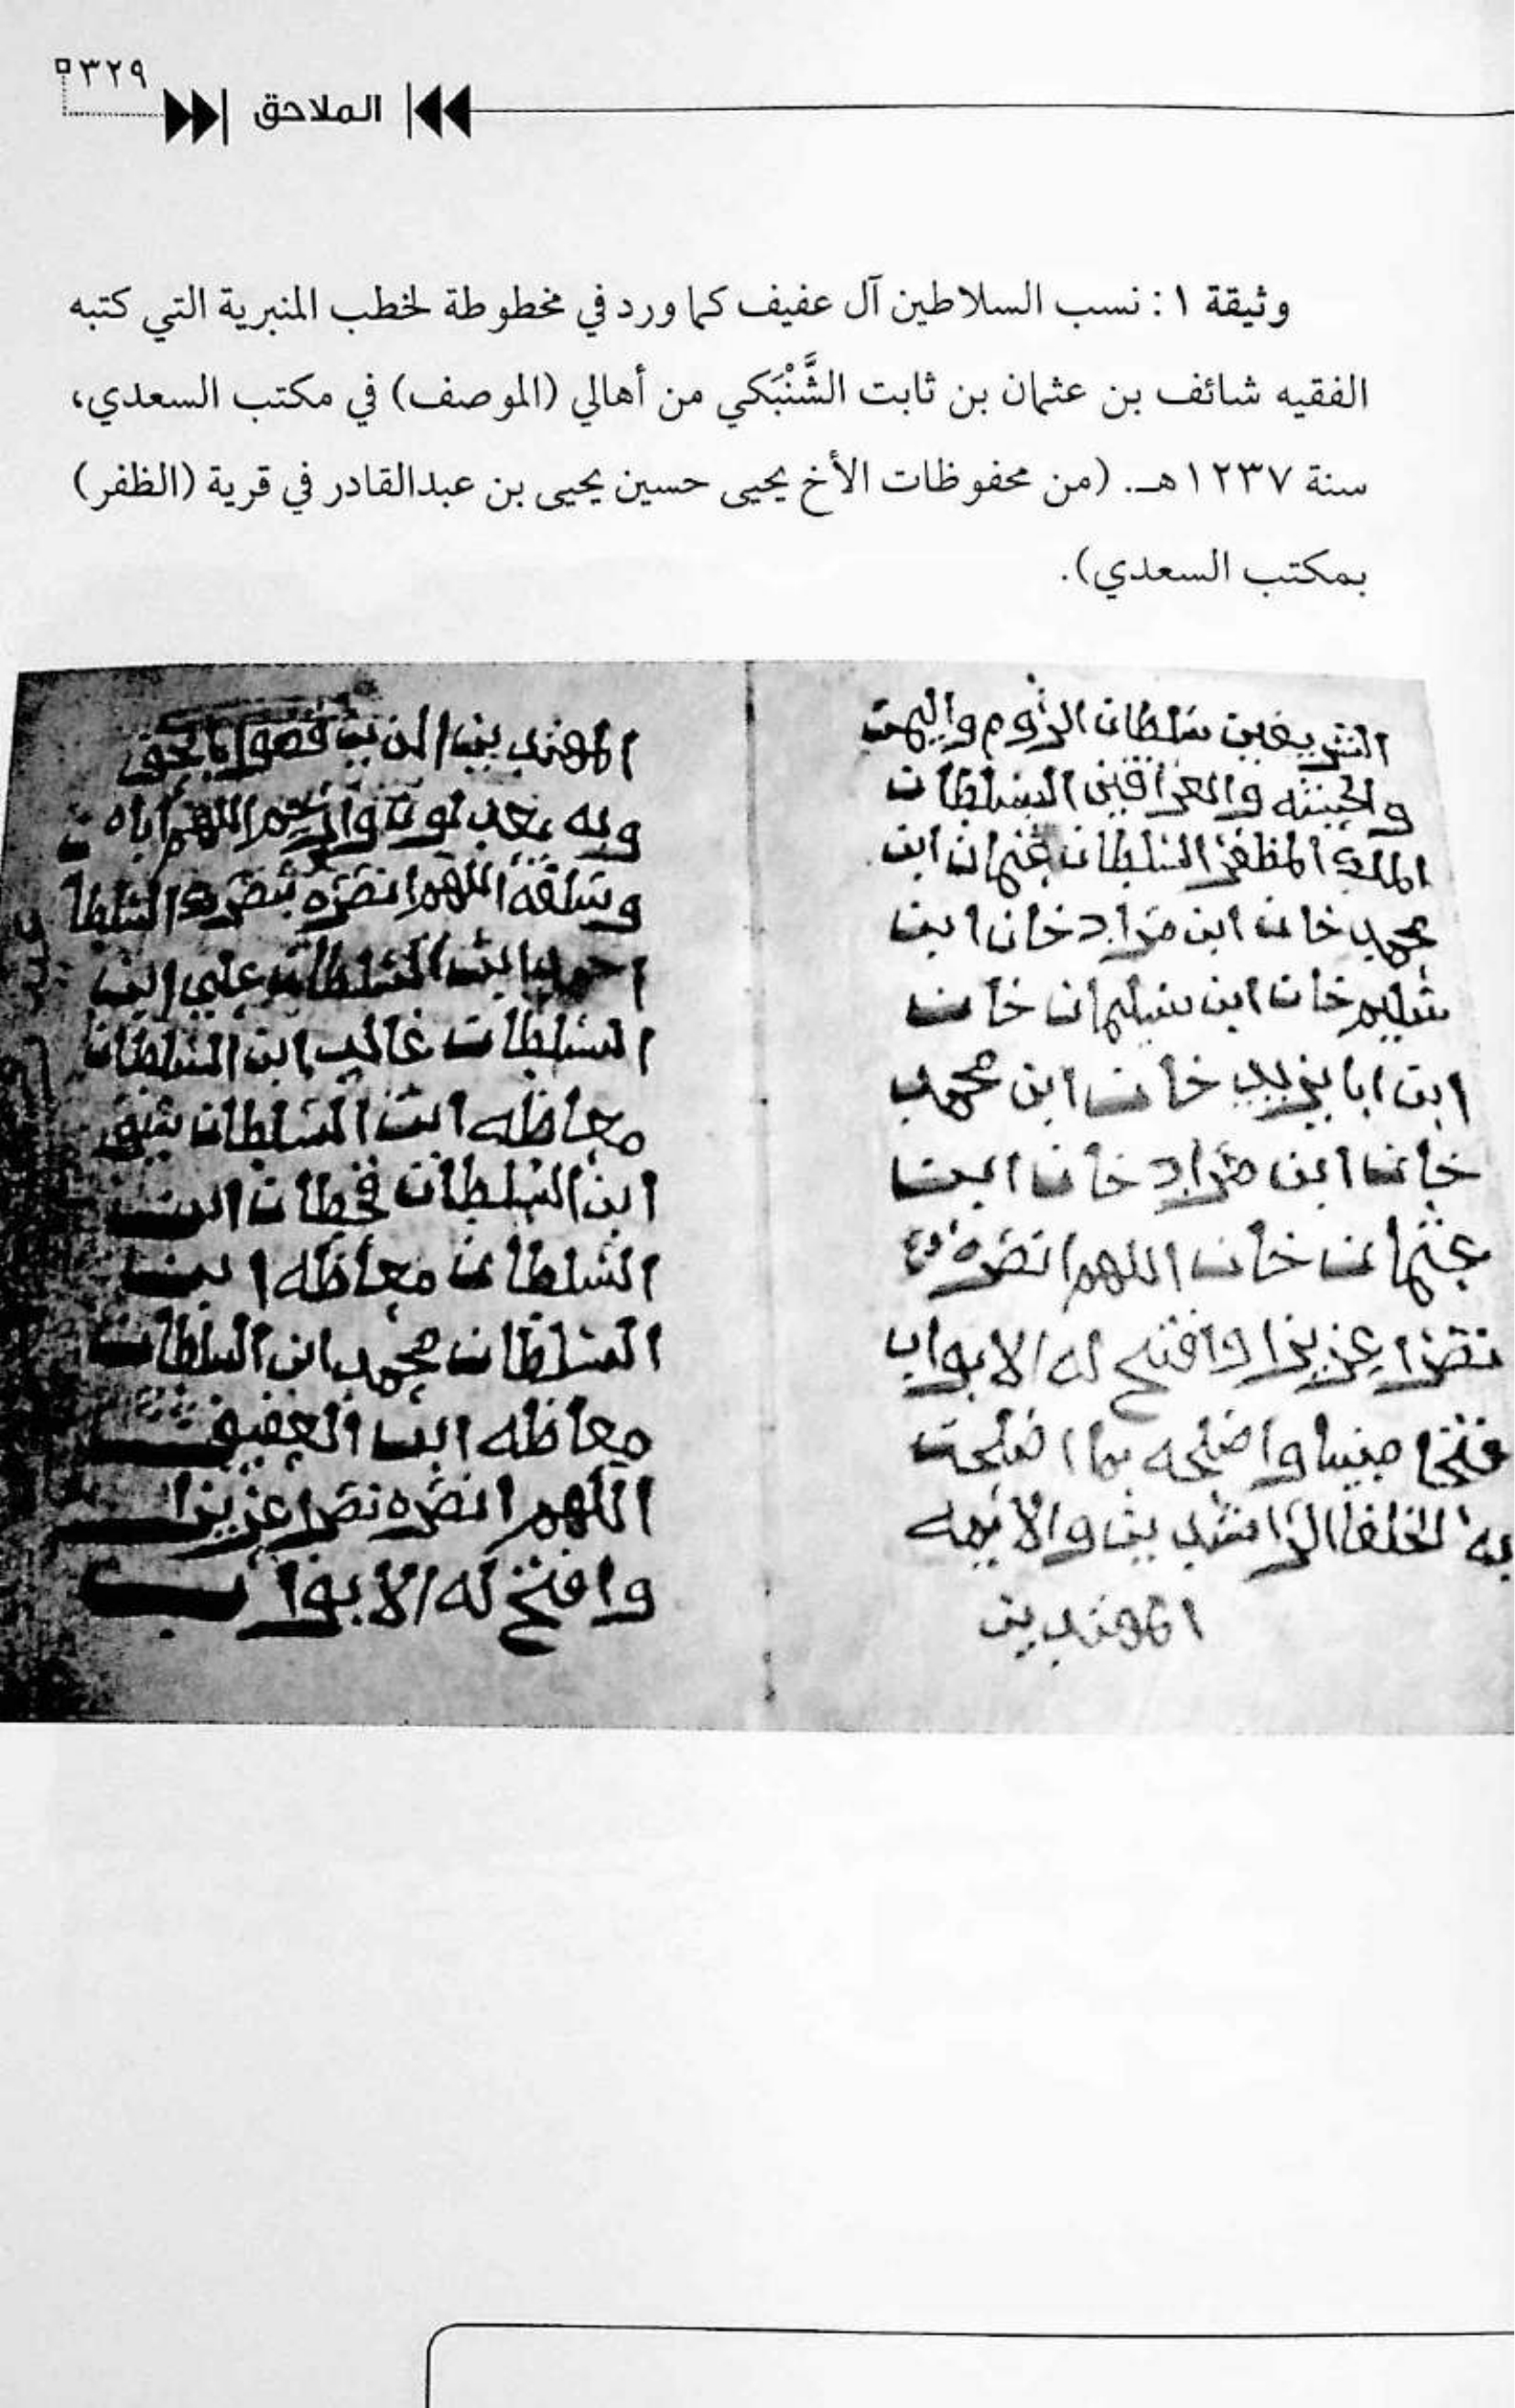 ٣٢٩
الملاحق
وثيقة ١ : نسب السلاطين آل عفيف كما ورد في مخطوطة لخطب المنبرية التي كتبه
الفقيه شائف بن عثمان بن ثابت الشَّنْبَكي من أهالي (الموصف) في مكتب السعدي،
سنة ١٢٣٧هـ. (من محفوظات الأخ يحيى حسين يحيى بن عبدالقادر في قرية (الظفر)
بمكتب السعدي).
الشريفين سلطان الروم واليمن
والحبشه والعراقين السلطان
الملك المظفر السلطان عثمان ابن
محمد خان ابن مراد خان ابن
سليم خان ابن سليمان خان
ابن ابا يزيد خان ابن محمد
خان ابن مراد خان ابن
عثمان خان اللهم انصره
نصرا عزيزا وافتح له الابواب
فتحا مبينا واصلحه بما اصلحت
به الخلفا الراشدين والايمه
المهتدين
المهتدين الذين قضوا بالحق
وبه يعدلون اللهم
وسلفه اللهم انصره بنصرك السلطان
احمد ابن السلطان علي ابن
السلطان غالب ابن السلطان
معاظه ابن السلطان سيف
ابن السلطان قحطان ابن
السلطان معاظه ابن
السلطان محمد ابن السلطان
معاظه ابن العفيف
اللهم انصره نصرا عزيزا
وافتح له الابواب